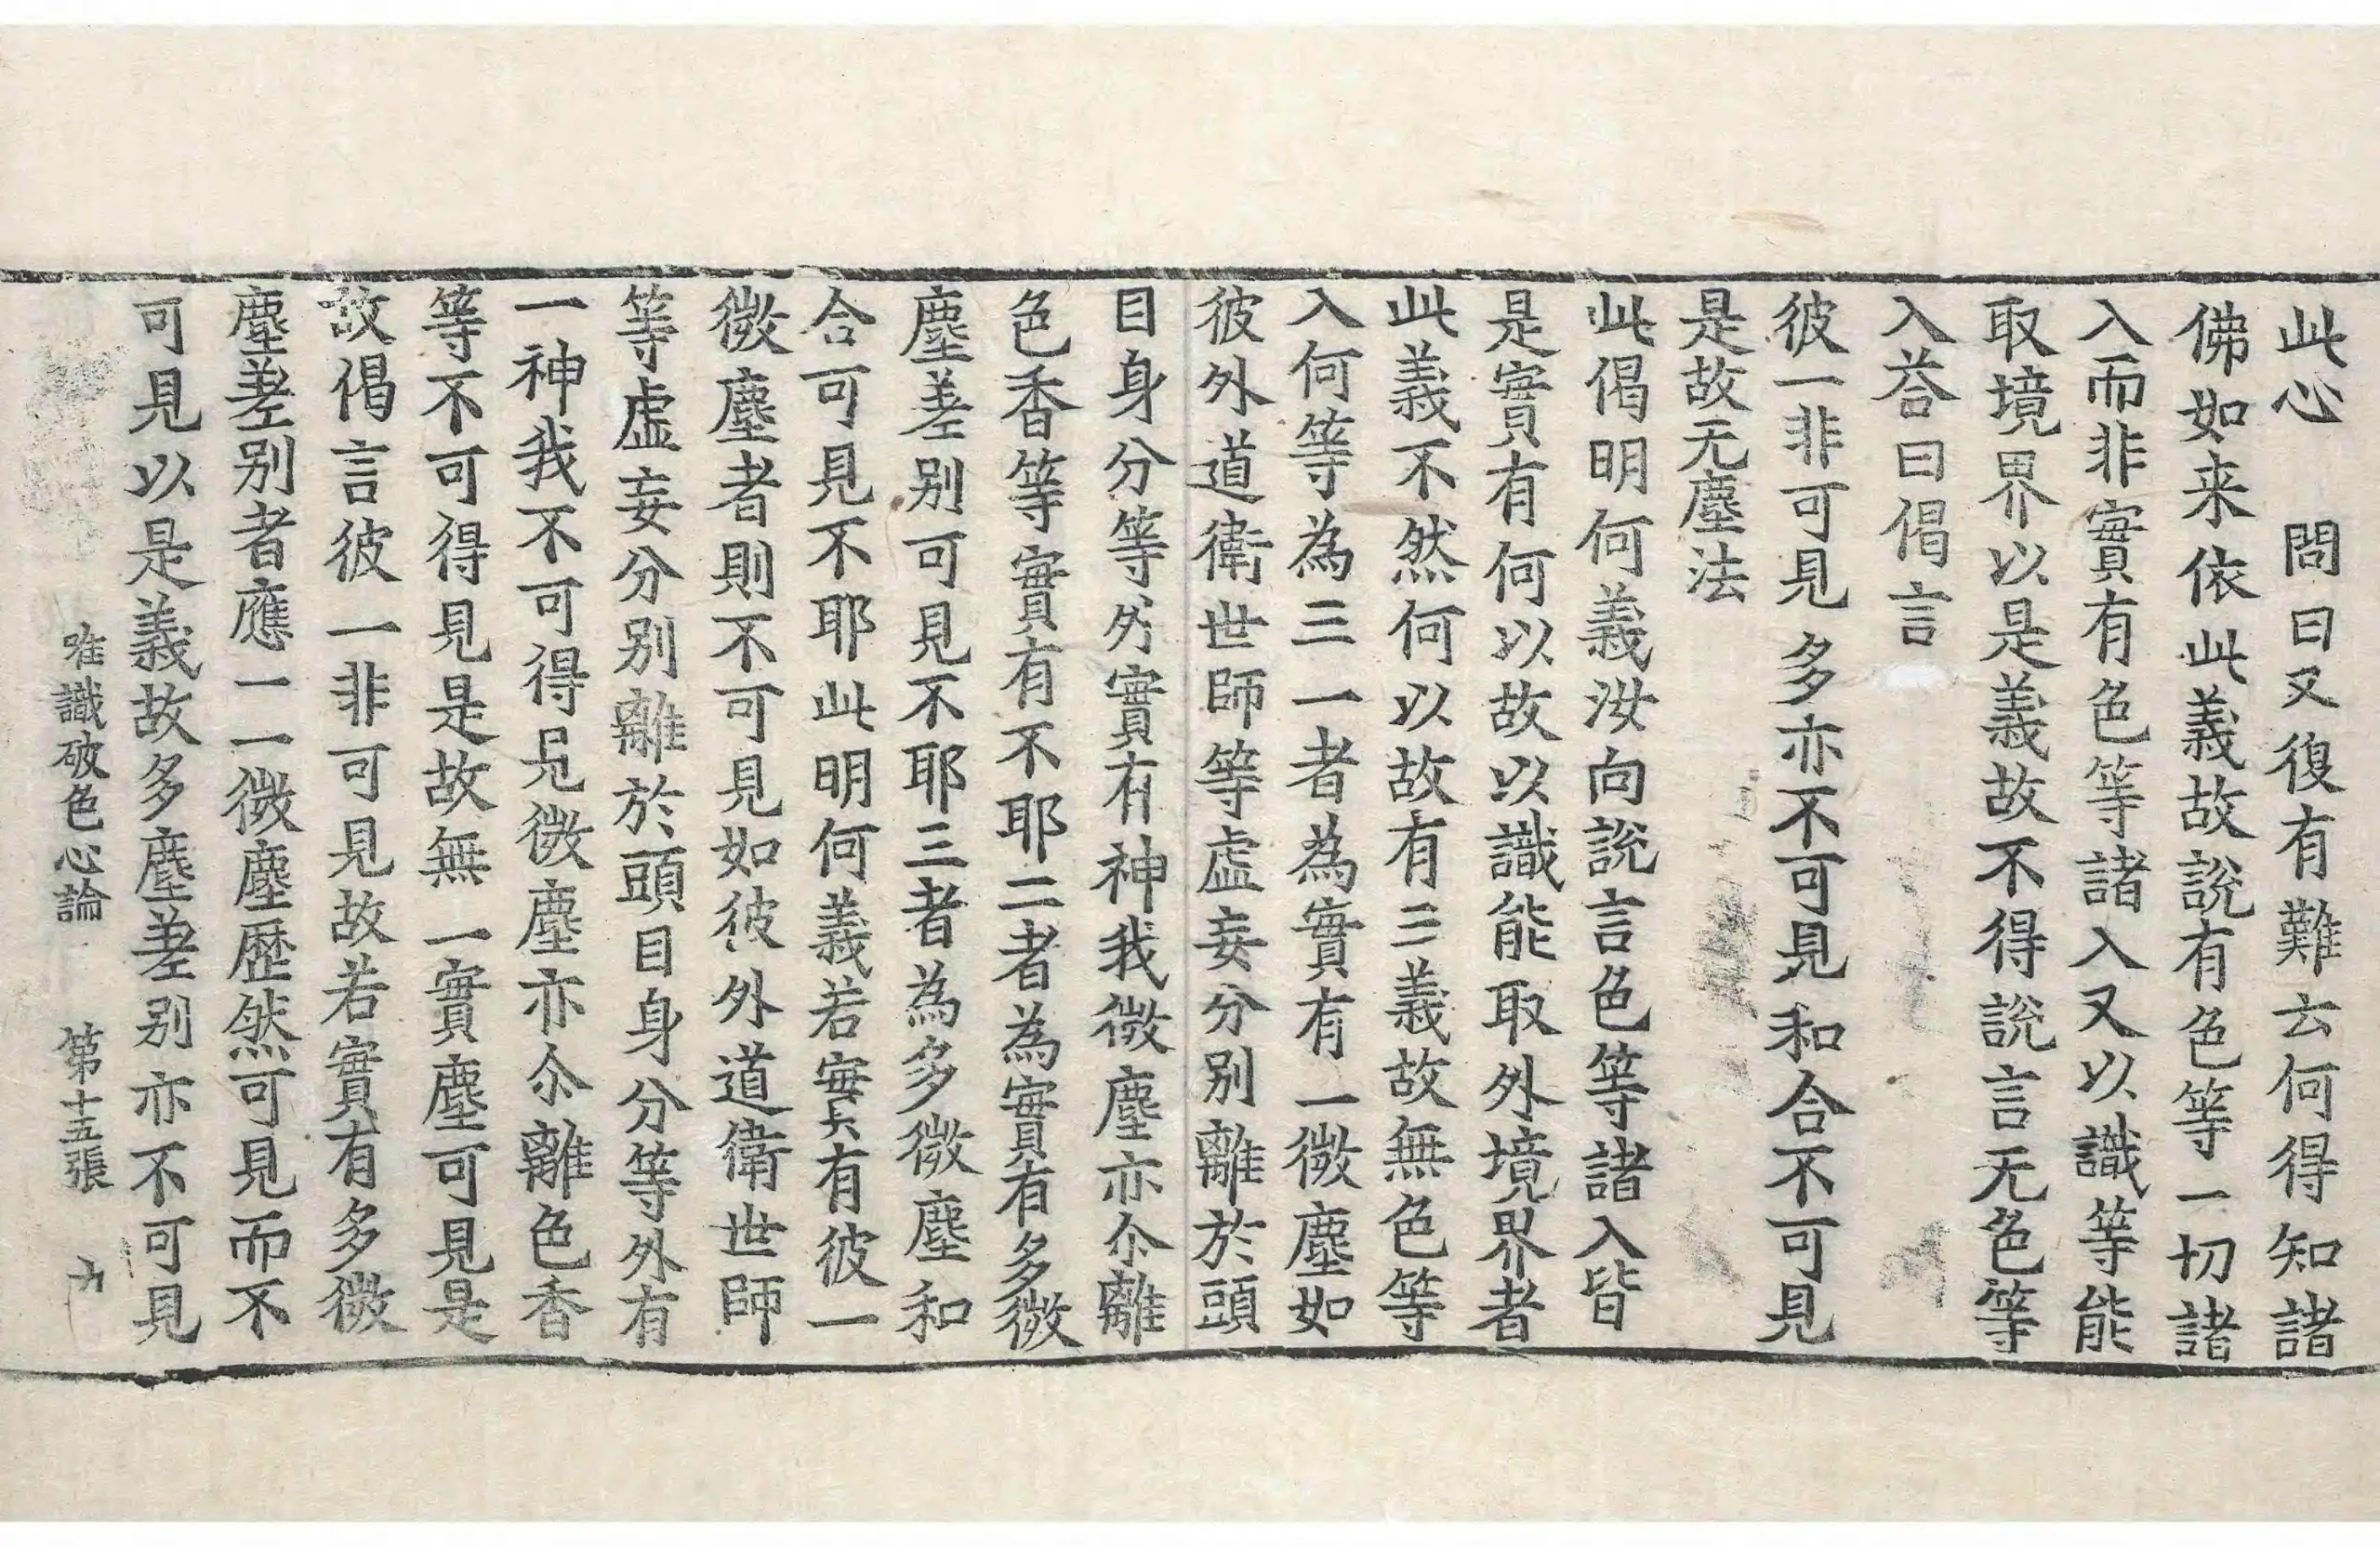 此心　問曰又復有難云何得知諸
佛如来依此義故說有色等一切諸
入而非實有色等諸入又以識等能
取境界以是義故不得說言无色等
入荅曰偈言
彼一非可見　多亦不可見　和合不可見
是故无塵法
此偈明何義汝向說言色等諸入皆
是實有何以故以識能取外境界者
此義不然何以故有三義故無色等
入何等為三一者為實有一微塵如
彼外道衛世師等虛妄分別離於頭
目身分等外實有神我微塵亦尒離
色香等實有不耶二者為實有多微
塵差別可見不耶三者為多微塵和
合可見不耶此明何義若實有彼一
微塵者則不可見如彼外道衛世師
等虛妄分別離於頭目身分等外有
一神我不可得見微塵亦尒離色香
等不可得見是故無一實塵可見是
故偈言彼一非可見故若實有多微
塵差別者應一一微塵歷然可見而不
可見以是義故多塵差別亦不可見
唯識破色心論　第十五張